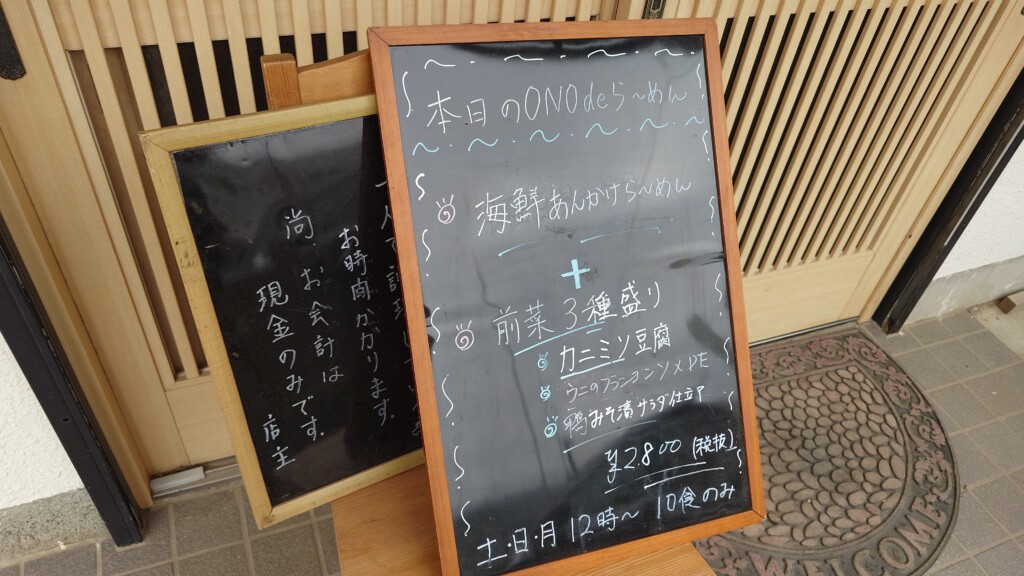 本日のONOdeら〜めん
海鮮あんかけら〜めん
+
前菜3種盛り
カニミソ豆腐
ウニのフランコンソメJE
鴨みそ漬サラダ仕立ア
¥2.800(税抜)
土・日・月 12時〜 10食のみ
一人で調理し
お時間かかります。
尚、お会計は
現金のみです。
店主
WELCOME